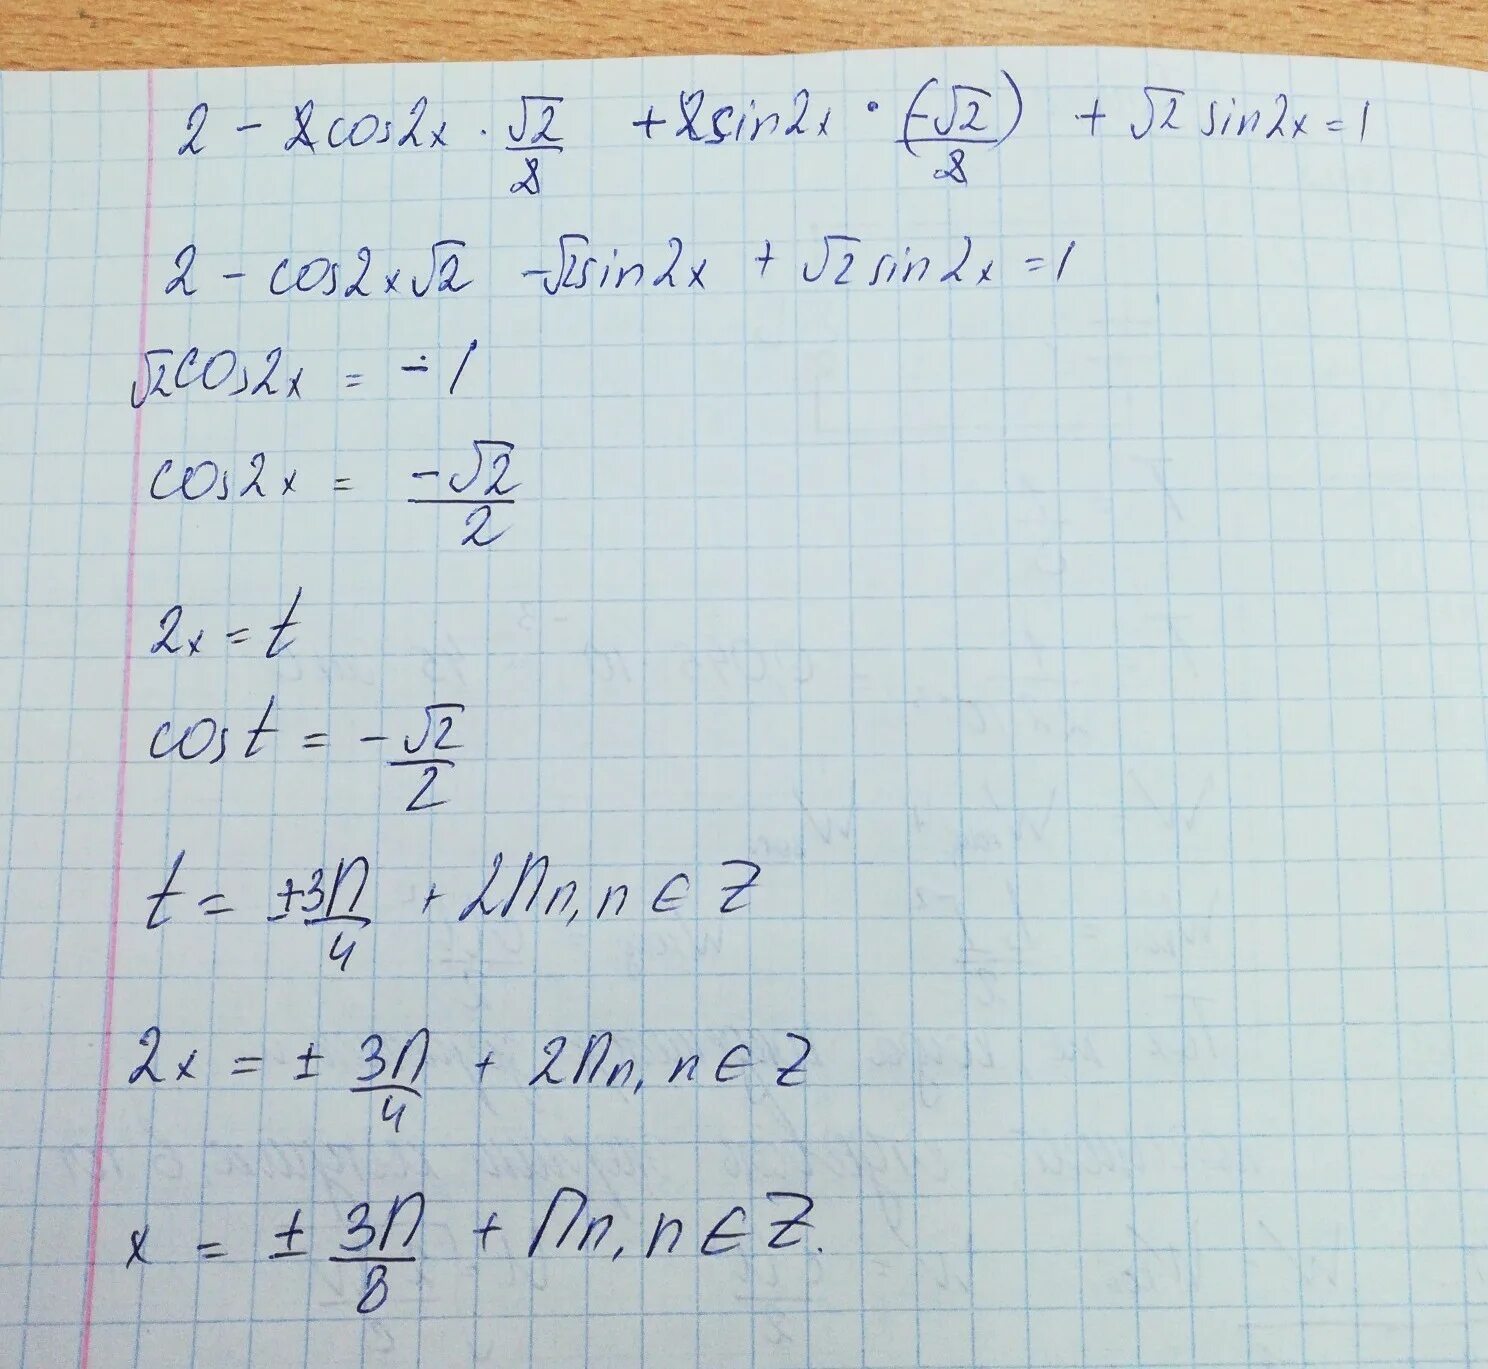 2 - 2cos2x · √2/2 + 2sin2x · (-√2)/2 + √2 sin2x = 1
2 - cos2x√2 - √2sin2x + √2sin2x = 1
√2cos2x = -1
cos2x = -√2/2
2x = t
cos t = -√2/2
t = ±3П/4 + 2Пn, n ∈ Z
2x = ± 3П/4 + 2Пn, n ∈ Z
x = ± 3П/8 + Пn, n ∈ Z.